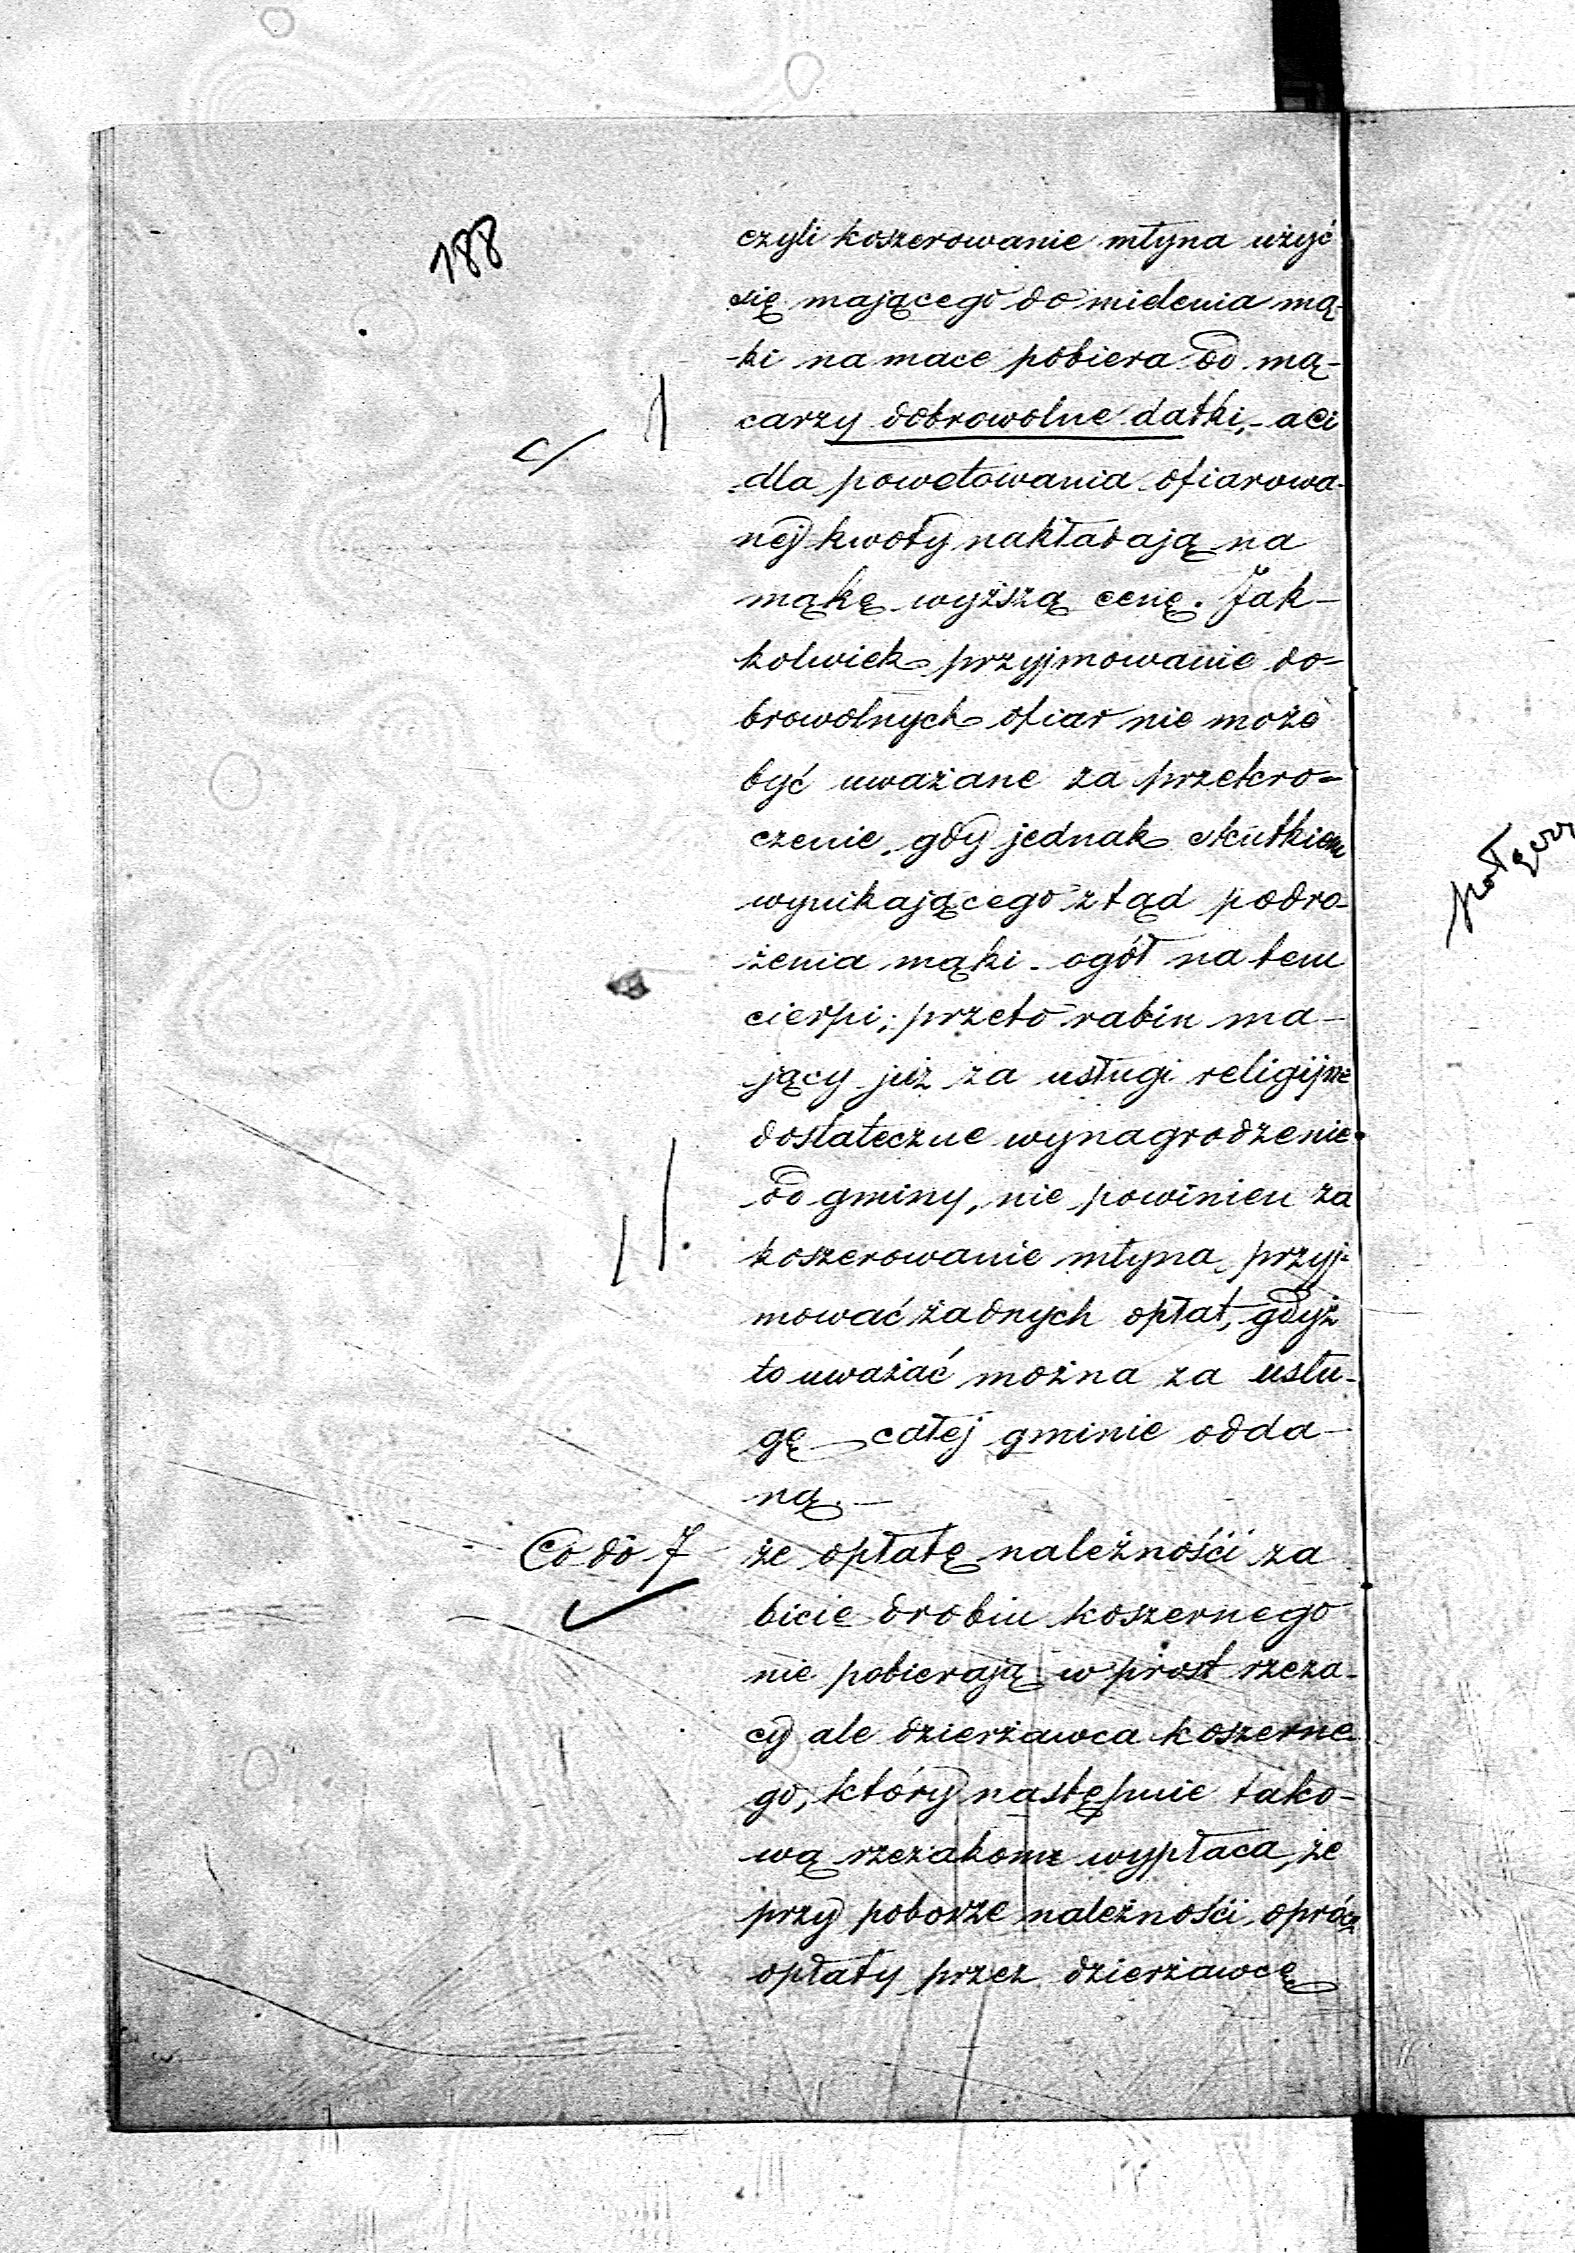 188
czyli koszerowanie młyna użyć
się mającego do mielenia mą-
-ki na mace pobiera od mą-
carzy dobrowolne datki, - a ci
c/
dla powetowania ofiarowa-
nej kwoty nakładają na
mąkę wyższą cenę. Jak-
kolwiek przyjmowanie do-
browolnych ofiar nie może
być uważane za przekro-
czenie, gdy jednak skutkiem
wynikającego ztąd podro-
żenia mąki ogół na tem
cierpi; przeto rabin ma-
jący już za usługi religijne
dostateczne wynagrodzenie
od gminy, nie powinien za
koszerowanie młyna, przyj-
mować żadnych opłat, gdyż
to uważać można za usłu-
gę całej gminie odda-
ną. -
Co do 7 że opłatę należnośći za
bicie drobiu koszernego
nie pobierają w prost rzeza-
cy ale dzierżawca koszerne
go, który następnie tako-
wą rzezakom wypłaca, że
przy poborze należnośći, oprócz
opłaty przez dzierżawcę